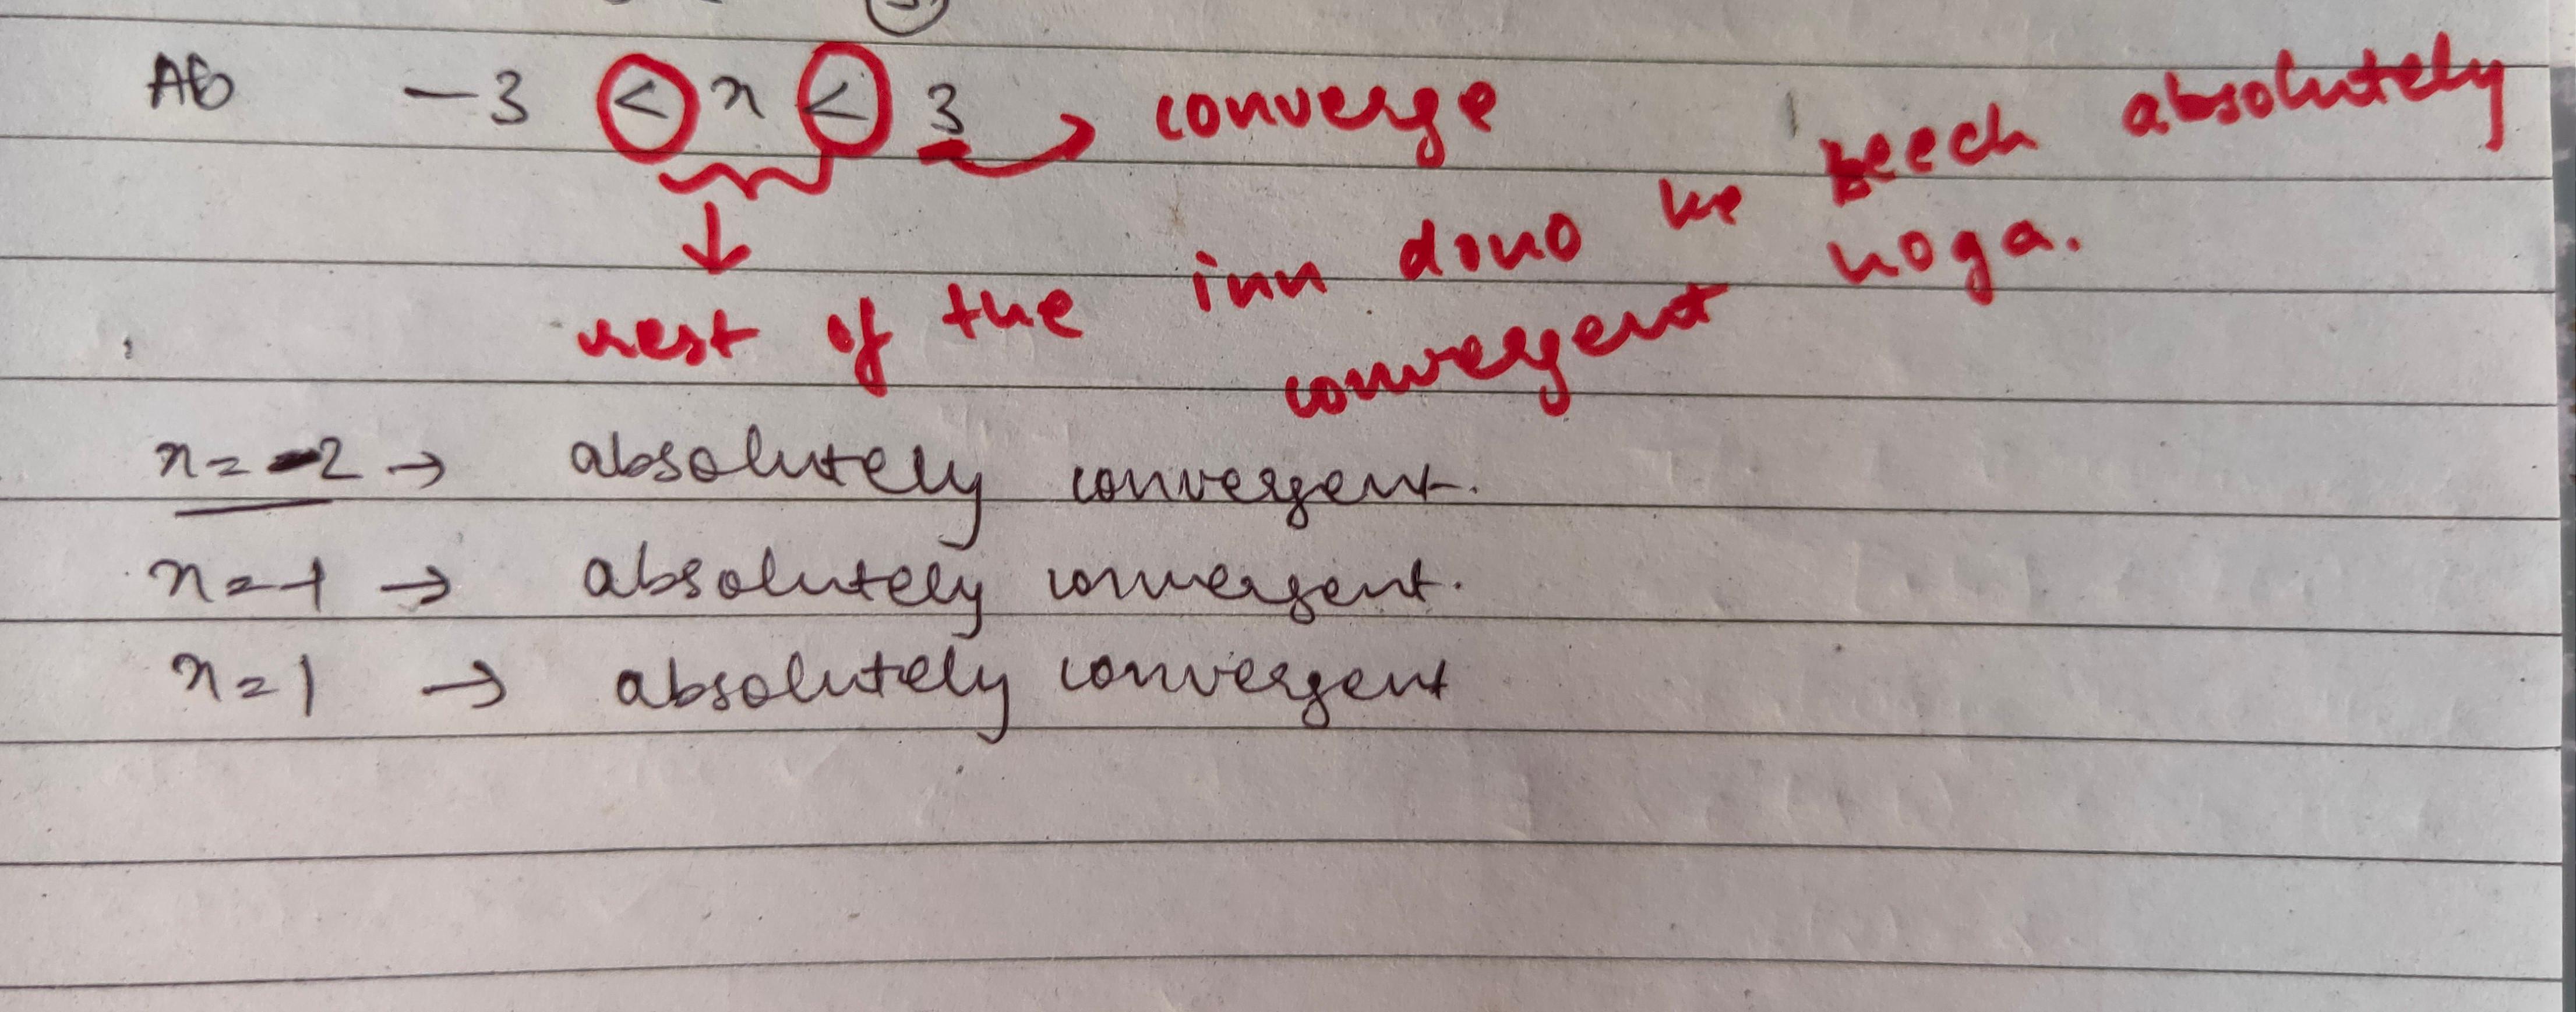 Ab -3 < x < 3 → converge
↓
rest of the inn dono ke beech absolutely
convergent hoga.
x = -2 → absolutely convergent.
x = -1 → absolutely convergent.
x = 1 → absolutely convergent